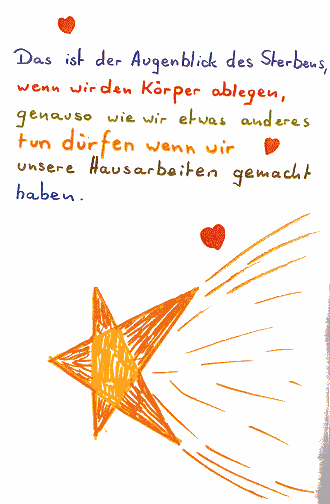 Das ist der Augenblick des Sterbens,
wenn wir den Körper ablegen,
genauso wie wir etwas anderes
tun dürfen wenn wir
unsere Hausarbeiten gemacht
haben.